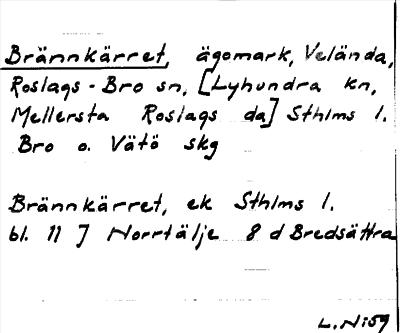 Brännkärret, ägomark, Velända,
Roslags-Bro sn, [Lyhundra kn,
Mellersta Roslags da] Sthlms l.
Bro o. Vätö skg
Brännkärret, ek Sthlms l.
bl. 11 J Norrtälje 8 d Bredsättra
L.Ni59